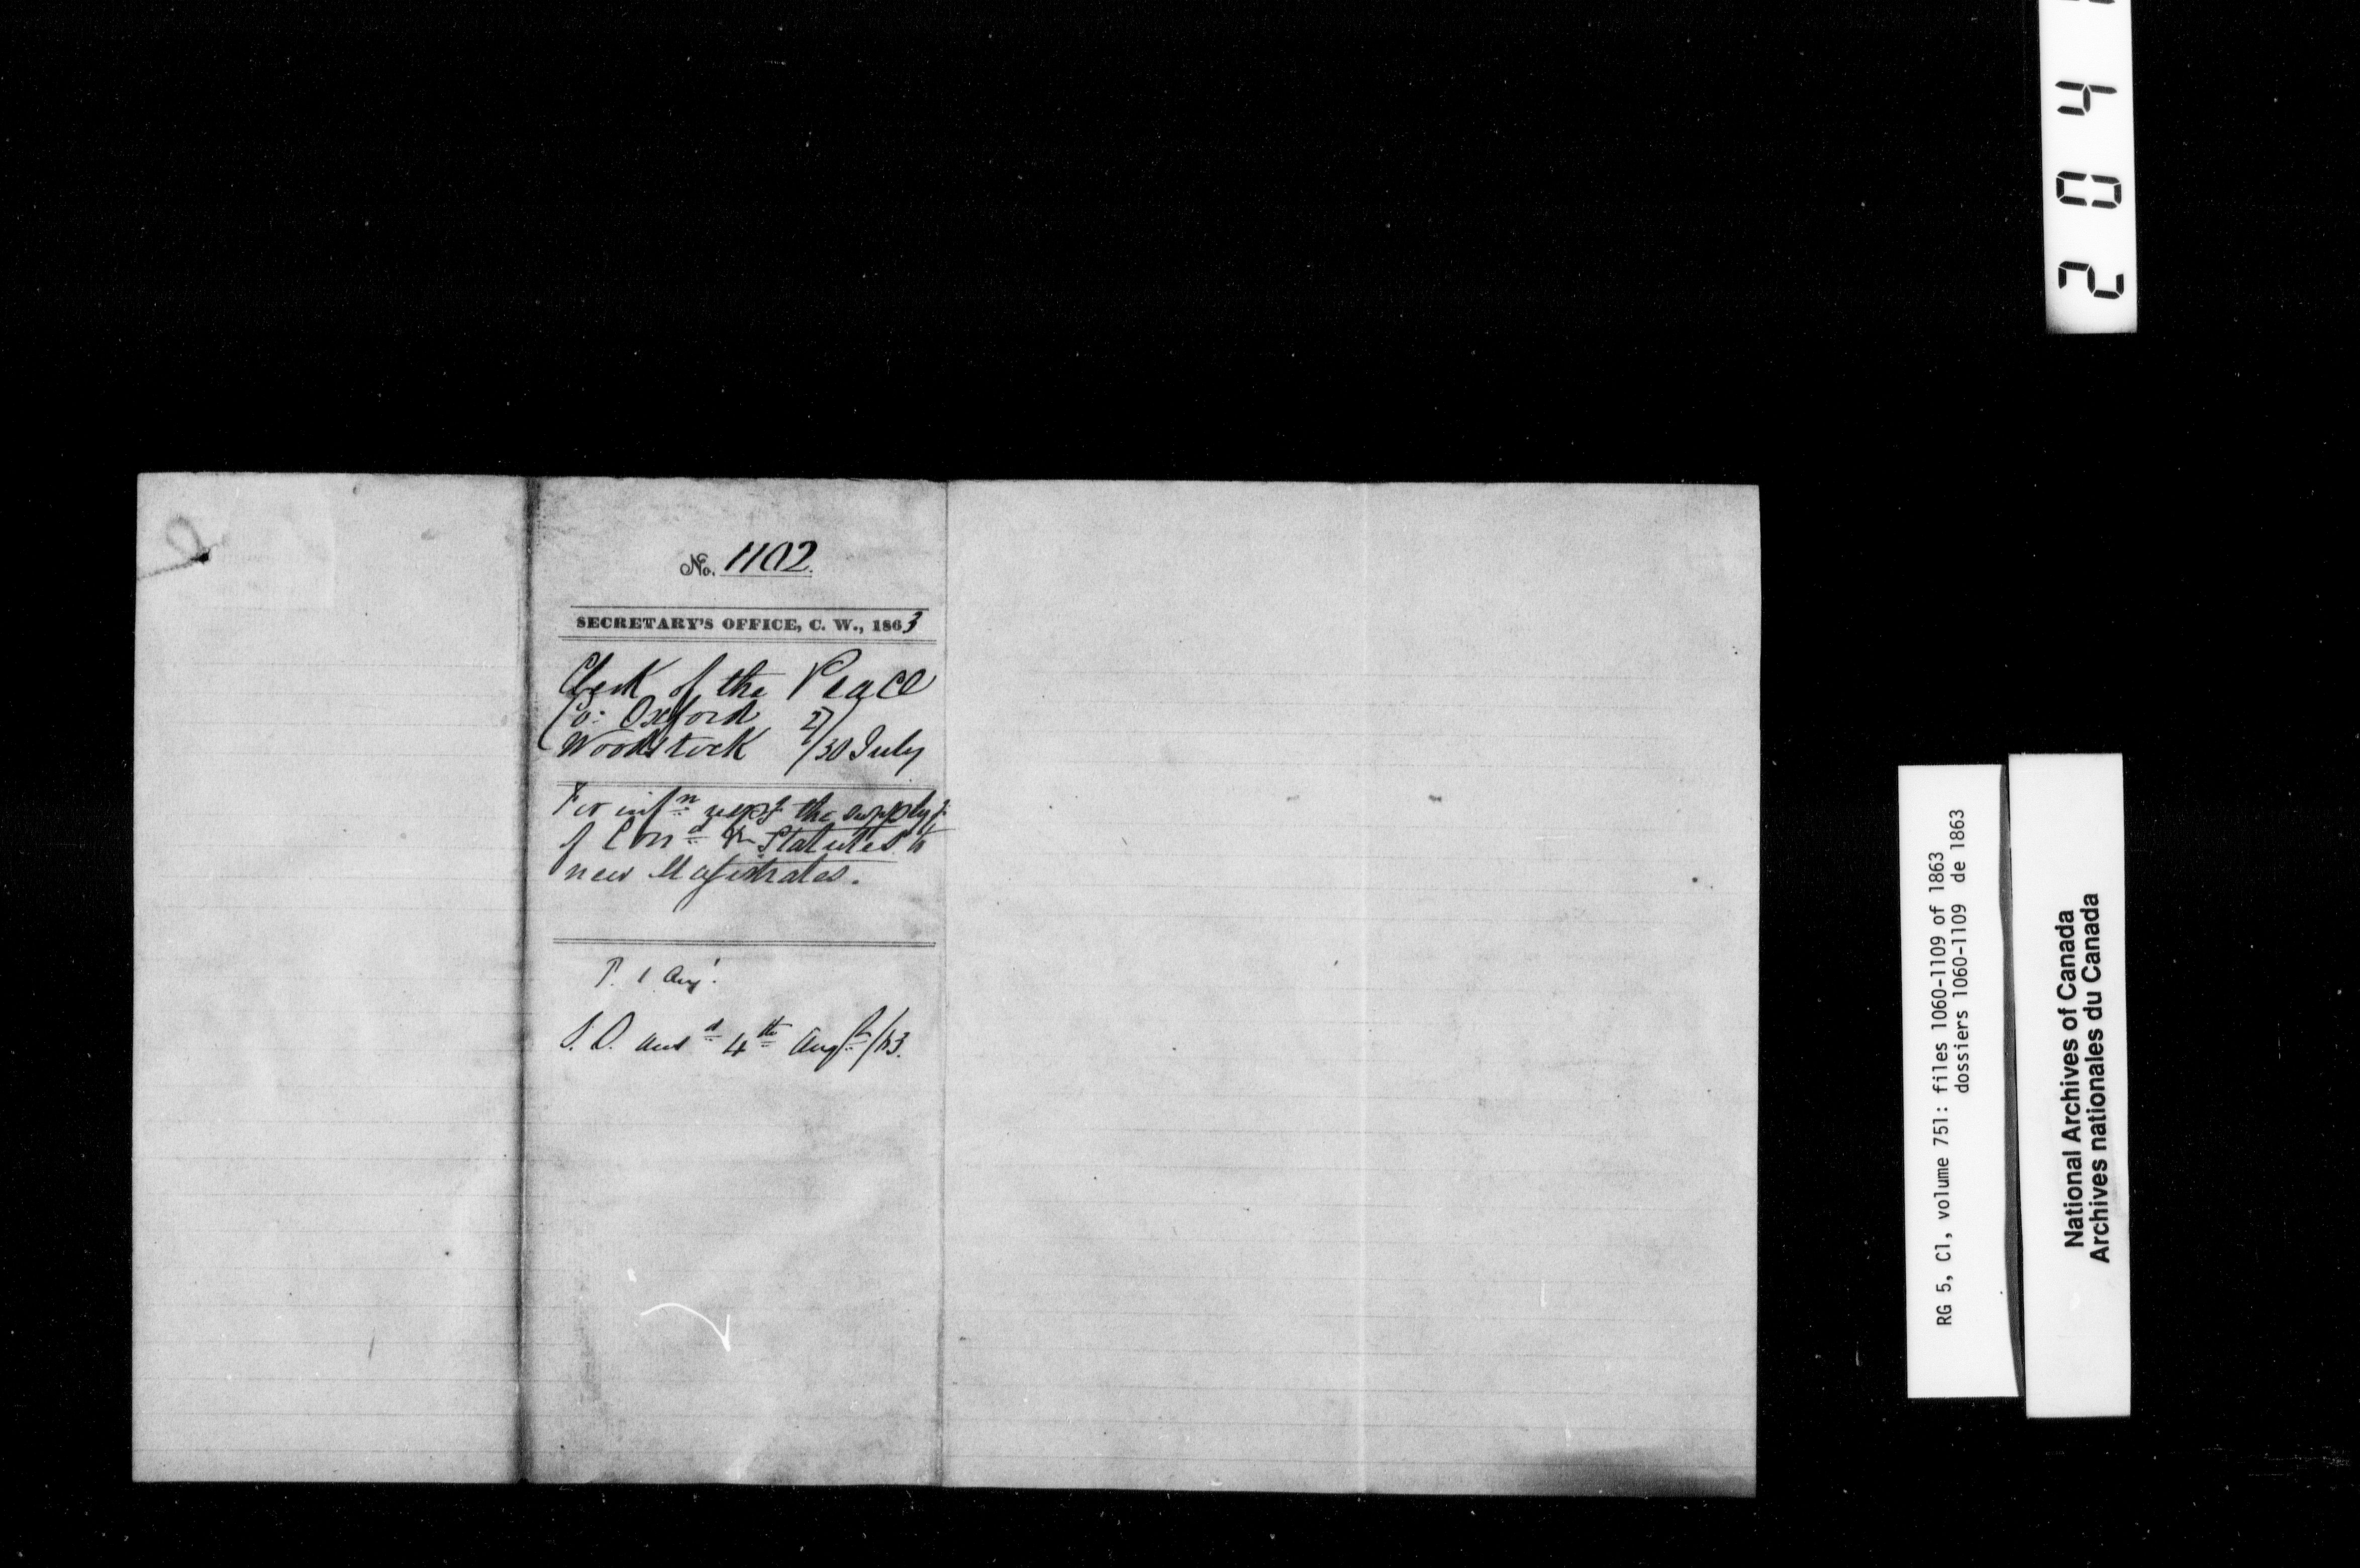 No. 1102.
SECRETARY'S OFFICE, C. W., 1863
Clerk of the Peace
Co: Oxford 27
Woodstock /30 July
For infn respg the supplyg
of Cond Statutes to
new Magistrates.
P. 1 Augt
S. D. ansd 4th Augt/63.
2041
RG 5, C1, volume 751: files 1060-1109 of 1863
dossiers 1060-1109 de 1863
National Archives of Canada
Archives nationales du Canada